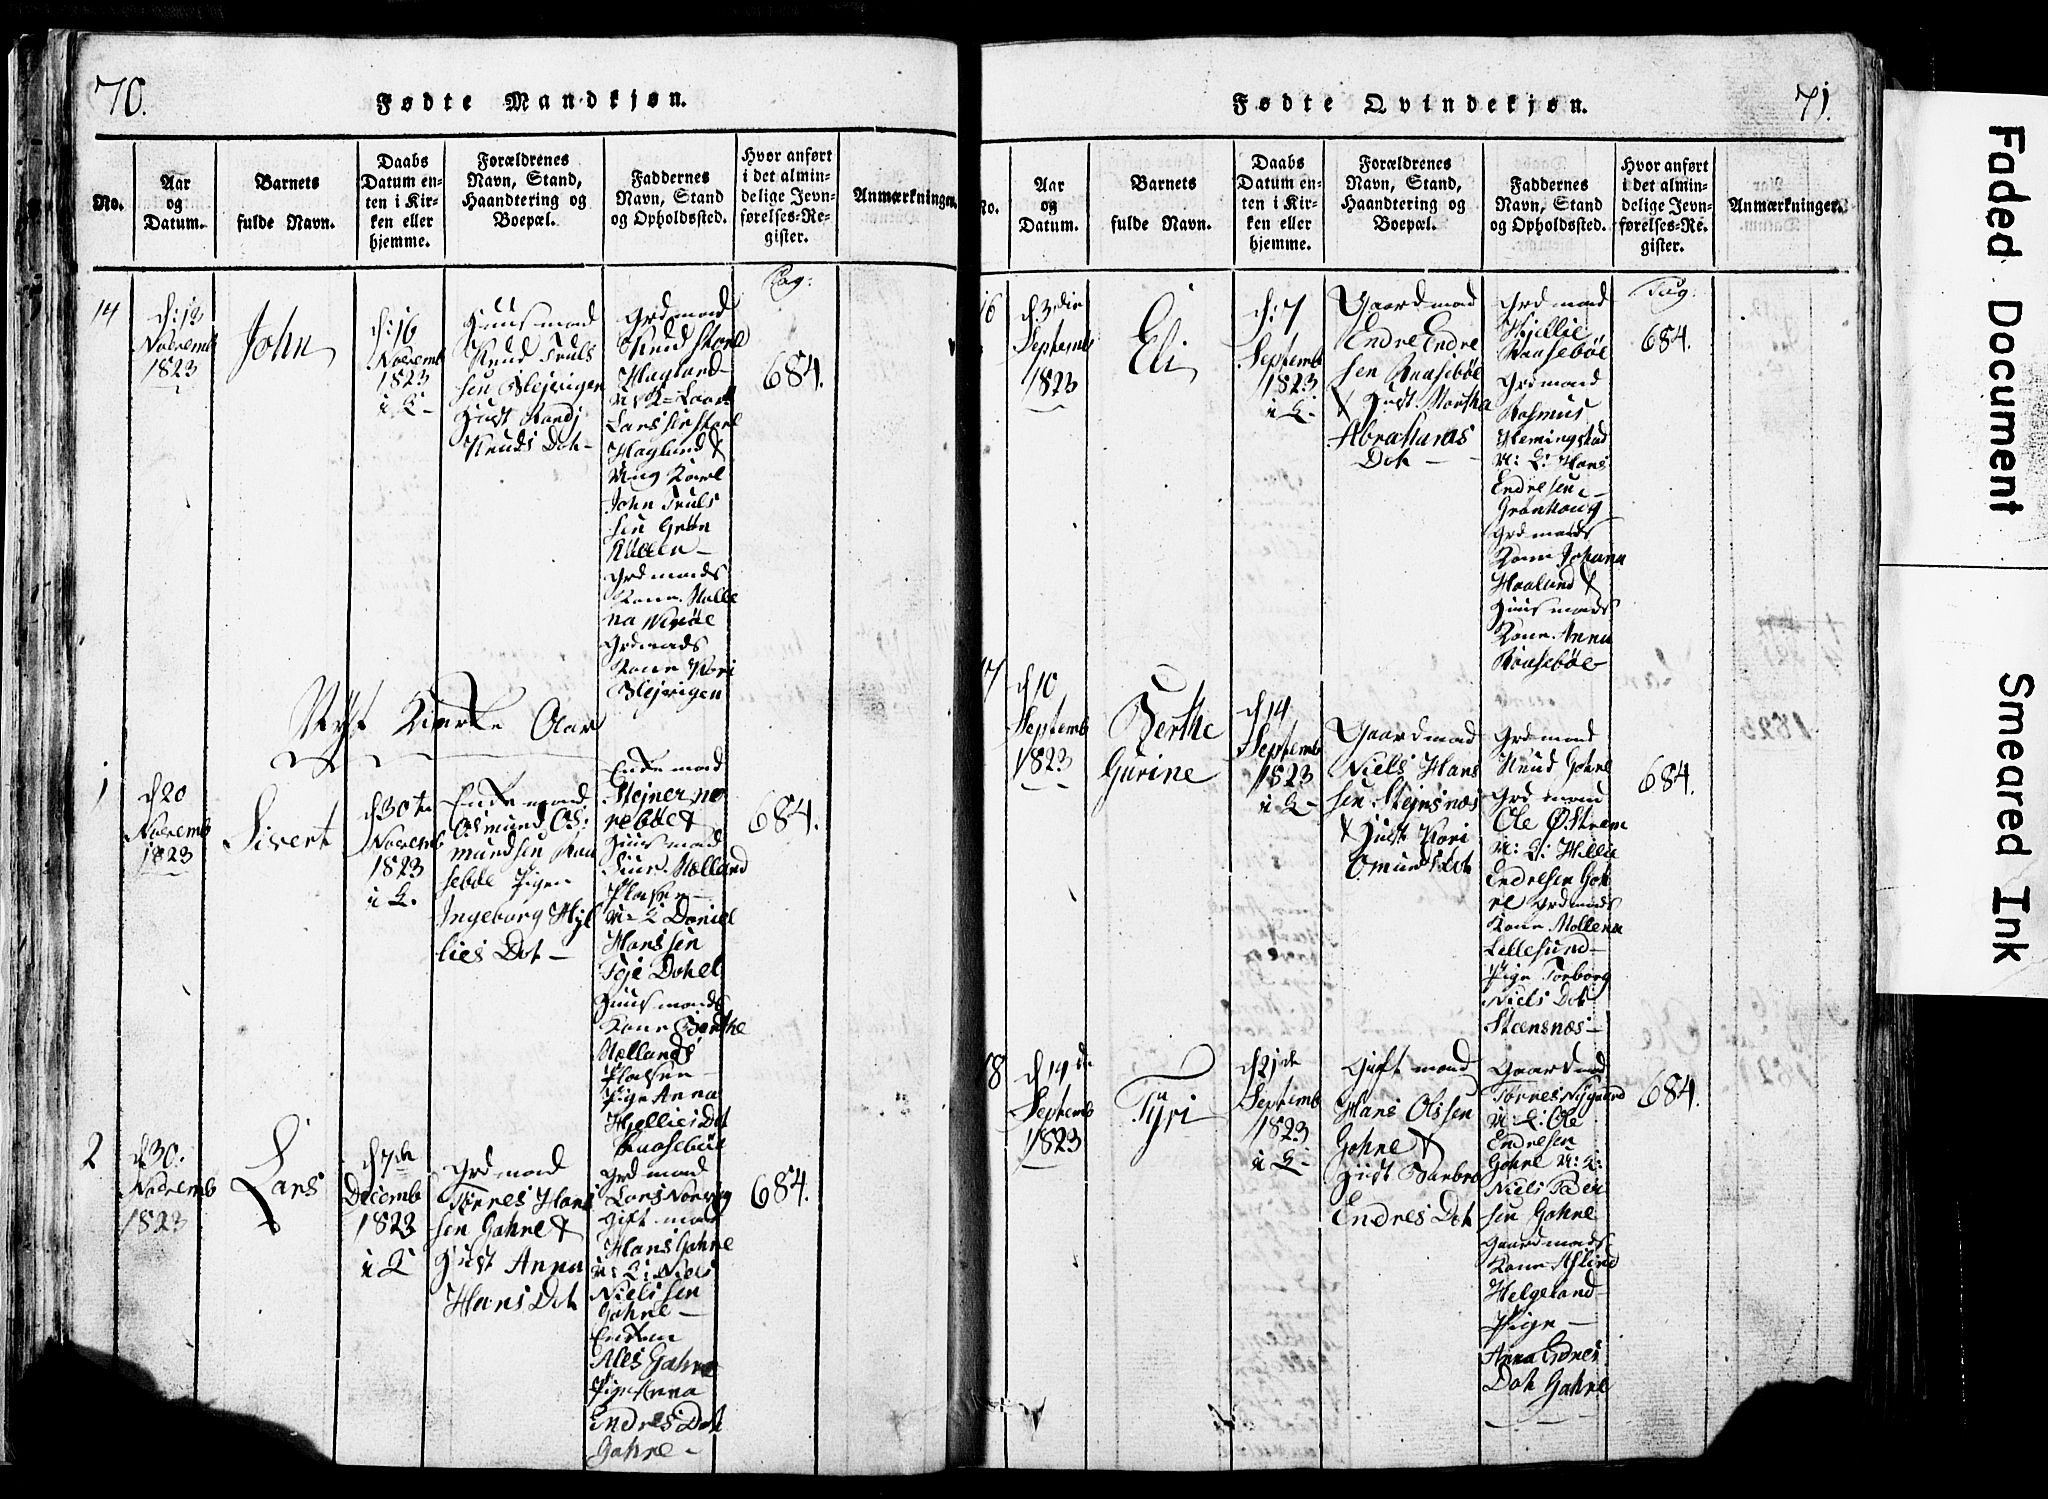 70.
Fødte Mandkjøn.
No.
Aar
og
Datum.
Barnets
fulde Navn.
Daabs
Datum en-
ten i Kir-
ken eller
hjemme.
Forældrenes
Navn, Stand,
Haandtering og
Boepæl.
Faddernes
Navn, Stand
og Opholdssted.
Hvor anført
i det almin-
delige Jevn-
førelses-Re-
gister.
Anmærkninger.
Pag:
14
d: 12
Novemb
1823
John
d: 16
Novemb
1823
i K-
Huusmand
Knud Truls
sen
Hust Randi
Knuds Dot-
Grdmand
Knud Store
Hagland
U K- Laurs
Larssen Store
Hagland &
Ung Karl
John Truls
sen Grøn
Grdmands
Kone Malle
na
Grdmands
Kone Kari
684.
Nyt Kierke Aar
1
d 20
Novemb
1823
Sivert
d 30te
Novemb
1823
i K.
Enkemand
Osmund Os:
mundsen Raa
sebøe Pigen
Ingeborg Hyl
lies Dot-
Enkemand
Stejner no
rebøe &
Huusmand
Siur Mælland
Pladsen-
U- K Daniel
Hanssen
Huusmands
Kone Berthe
Mællands
Pladsen-
Pige Anna
Hyellies Dot
Raasebøe
684.
2
d 30.
Novemb
1823
Lars
d 7de
Decemb
1823
i K
Grdmand
Tørres Hans
sen Gahre &
Hust Anna
Hans Dot
Grdmand
Lars Norvig
Gift mand
Hans Gahre
U: K: Niels
Nielssen
Gahre-
Enken
Ales Gahre
Pige Anna
Endres Dot
Gahre-
684.
71.
Fødte Qvindekjøn.
No.
Aar
og
Datum.
Barnets
fulde Navn.
Daabs
Datum en-
ten i Kir-
ken eller
hjemme.
Forældrenes
Navn, Stand,
Haandtering og
Boepæl.
Faddernes
Navn, Stand
og Opholdssted.
Hvor anført
i det almin-
delige Jevn-
førelses-Re-
gister.
Anmærkninger.
Pag:
16
d 3die
Septemb
1823
Eli
d: 7
Septemb
1823
i K-
Gaardmand
Endre Endre
sen Raasebøe
& Hust. Martha
Abrahams
Dot-
Grdmand
Hjellie
Raasebøe
Grdmand
Rasmus
Hemingstad
U: K: Hans
Endresen
Grønhoug
Grdmands
Kone Johana
Haaland &
Huusmands
Kone Anna
Raasebøe-
684.
17
d 10
Septemb
1823
Berthe
Gurine
d 14
Septemb
1823
i K-
Gaardmand
Niels Hans
sen Stejnsnæs
& Hust Kari
Omunds Dot
Grdmand
Knud Gahre
Grdmand
Ole Østrem
U: K: Hellie
Endresen Gah
re Grdmands
Kone Mallena
Lillesund-
Pige Torborg
Niels Dot
Steensnæs-
684.
18
d 14de
Septemb
1823
Tyri
d 21de
Septemb
1823
i K-
Gift mand
Hans Olssen
Gahre &
Hust Barbro
Endres Dot
Gaardmand
Tørres Nygaard
U: K: Ole
Endresen
Gahre U: K:
Niels Peder
sen Gahre
Gaardmands
Kone Aslind
Helgeland-
Pige-
Anna Endres
Dot Gahre
684.
Faded Document
Smeared Ink